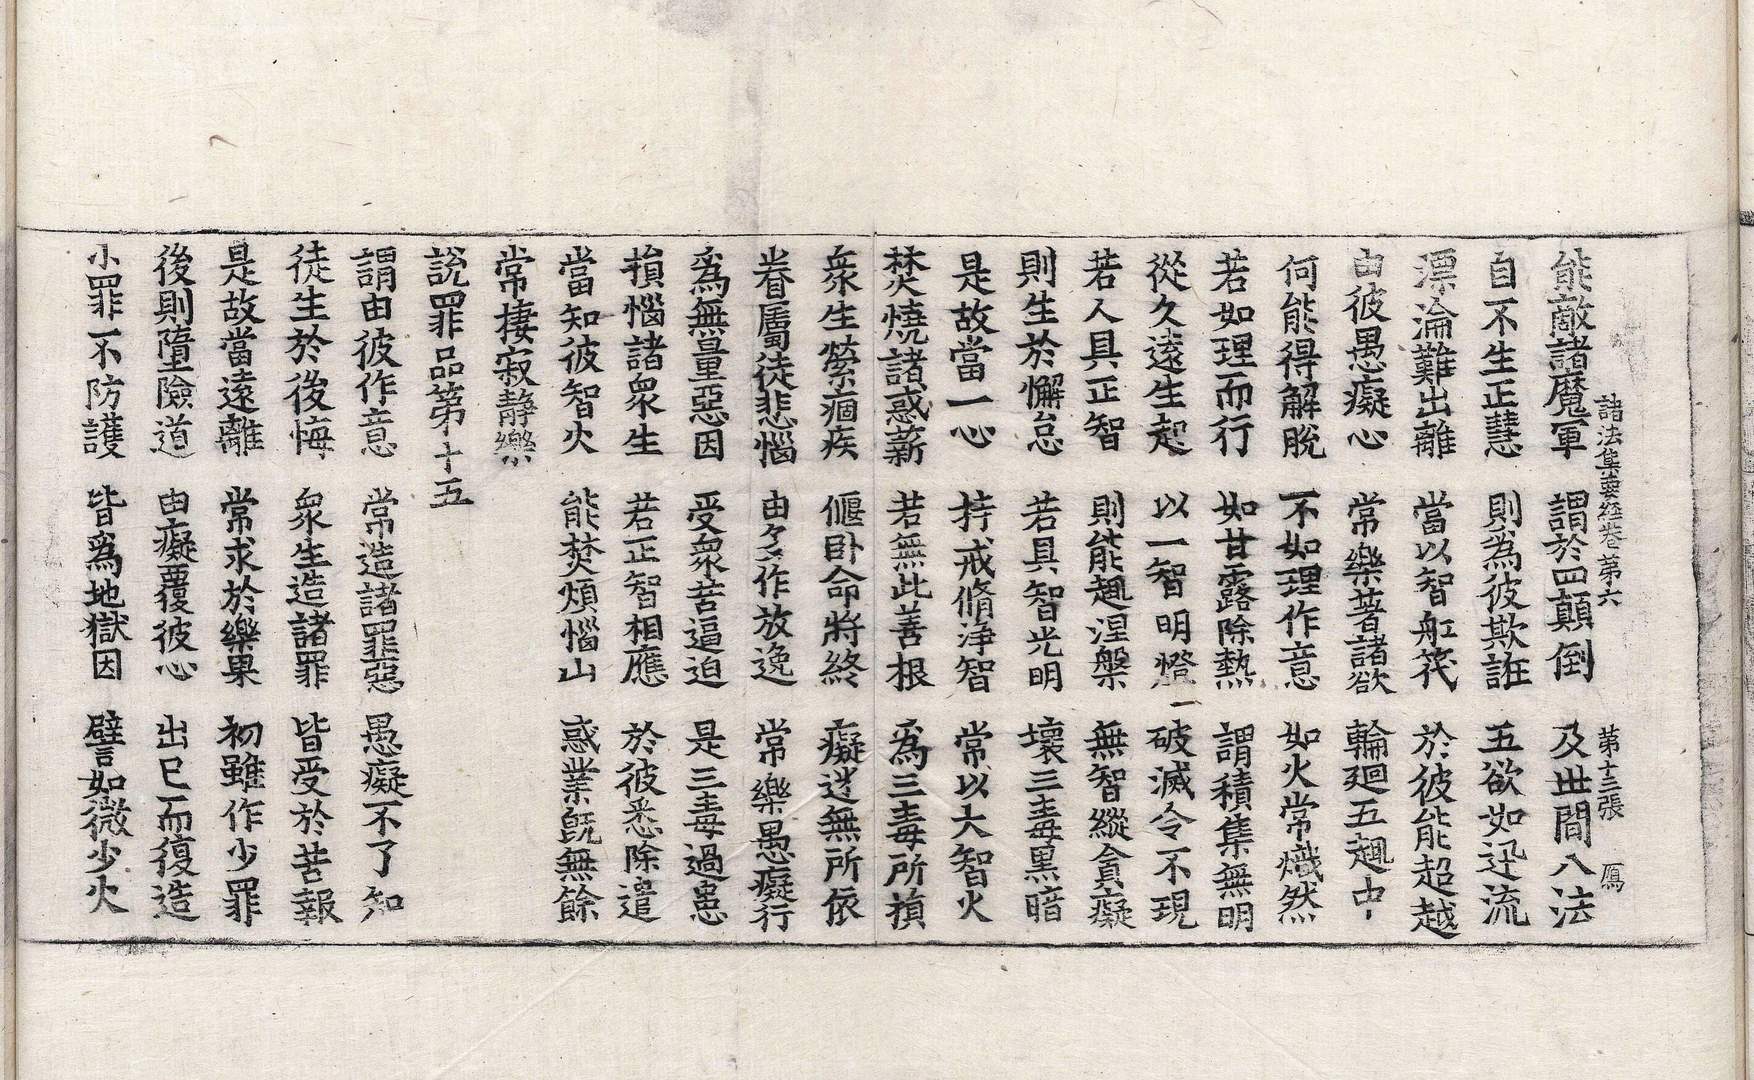 諸法集要經卷第六 第十三張 鴈
能敵諸魔軍 謂於四顛倒 及世間八法
自不生正慧 則為彼欺誑 五欲如迅流
漂淪難出離 當以智舡筏 於彼能超越
由彼愚癡心 常樂著諸欲 輪廻五趣中
何能得解脫 不如理作意 如火常熾然
若如理而行 如甘露除熱 謂積集無明
從久遠生起 以一智明燈 破滅令不現
若人具正智 則能趣涅槃 無智縱貪癡
則生於懈怠 若具智光明 壞三毒黑暗
是故當一心 持戒脩淨智 常以大智火
焚燒諸惑薪 若無此善根 為三毒所損
衆生縈痼疾 偃臥命將終 癡迷無所依
眷屬徒悲惱 由多作放逸 常樂愚癡行
為無量惡因 受衆苦逼迫 是三毒過患
損惱諸衆生 若正智相應 於彼悉除遣
當知彼智火 能焚煩惱山 惑業旣無餘
常捿寂靜樂
說罪品第十五
謂由彼作意 常造諸罪惡 愚癡不了知
徒生於後悔 衆生造諸罪 皆受於苦報
是故當遠離 常求於樂果 初雖作少罪
後則墮險道 由癡覆彼心 出已而復造
小罪不防護 皆爲地獄因 譬如微少火